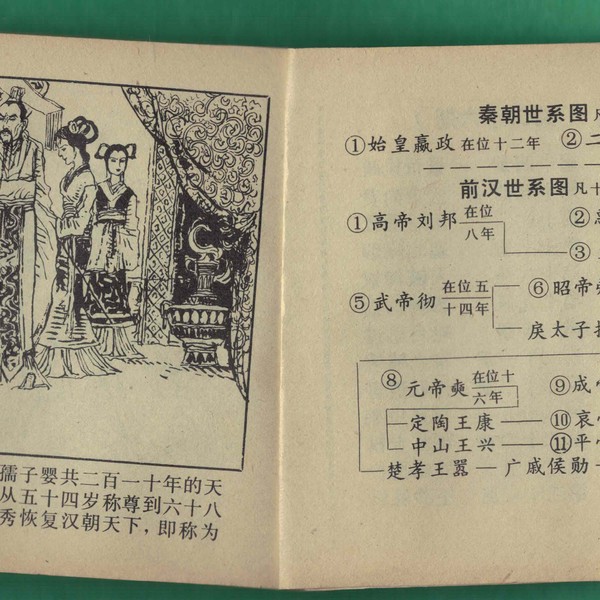 孺子婴共二百一十年的天
从五十四岁称尊到六十八
秀恢复汉朝天下，即称为
秦朝世系图 凡
①始皇嬴政 在位十二年 ②二
前汉世系图 凡十
①高帝刘邦 在位八年 ②
③
⑤武帝彻 在位五十四年 ⑥昭帝
戾太子
⑧元帝奭 在位十六年 ⑨成
定陶王康 ⑩哀
中山王兴 ⑪平
楚孝王嚣 广戚侯勋